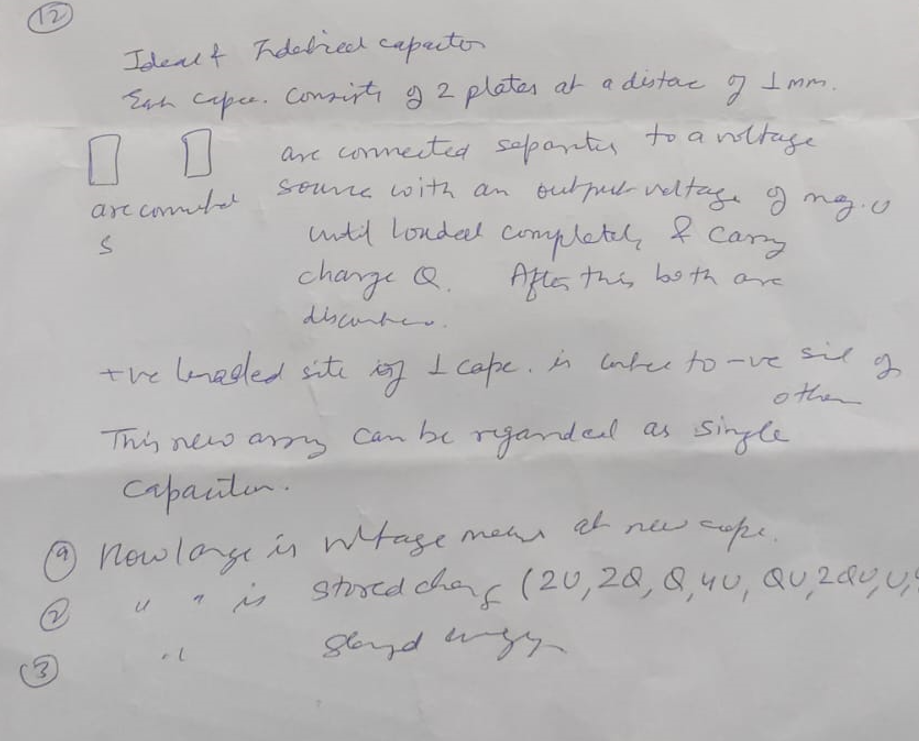 12
Ideal &           capacitor
Each capac. Consists of 2 plates at a distac of 1 mm.
are connected           to a voltage
are connected source with an output voltage of mag. U
S until loaded completely & carry
charge Q. After this both are
+ve loaded site of 1 cape. is           to -ve sid of
other
This new           can be regarded as single
Capacitor.
a How large is voltage           at new cape.
2 " " is stored charg (2U, 2Q, Q, 4U, QU, 2QU, U,
3 "